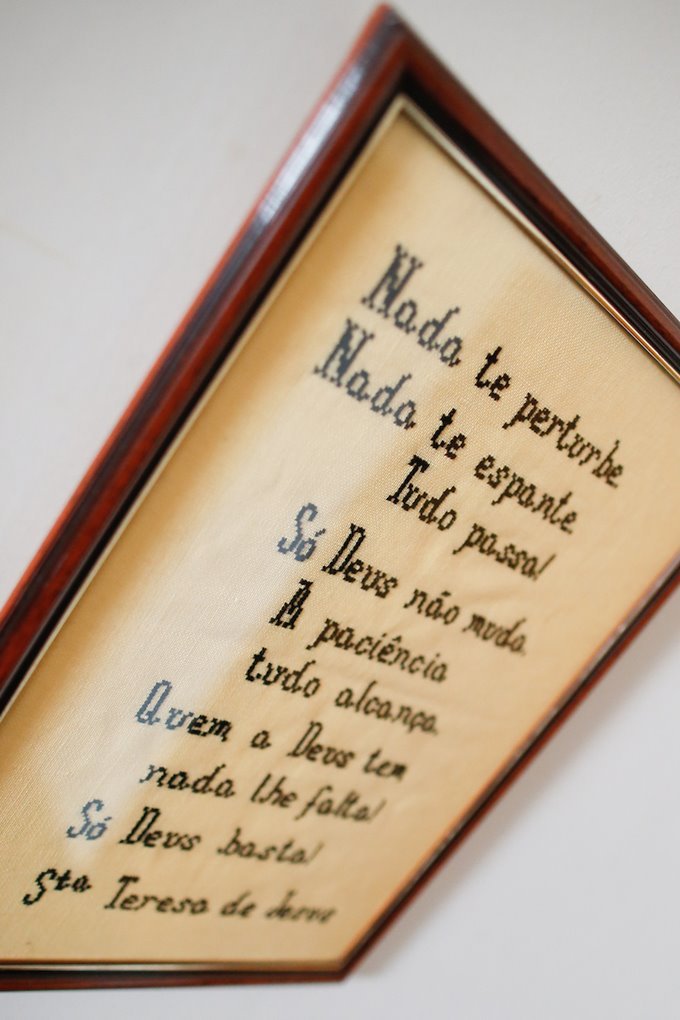 Nada te perturbe
Nada te espante
Tudo passa!
Só Deus não muda.
A paciência
tudo alcança.
Quem a Deus tem
nada lhe falta!
Só Deus basta!
Sta Teresa de Jesus